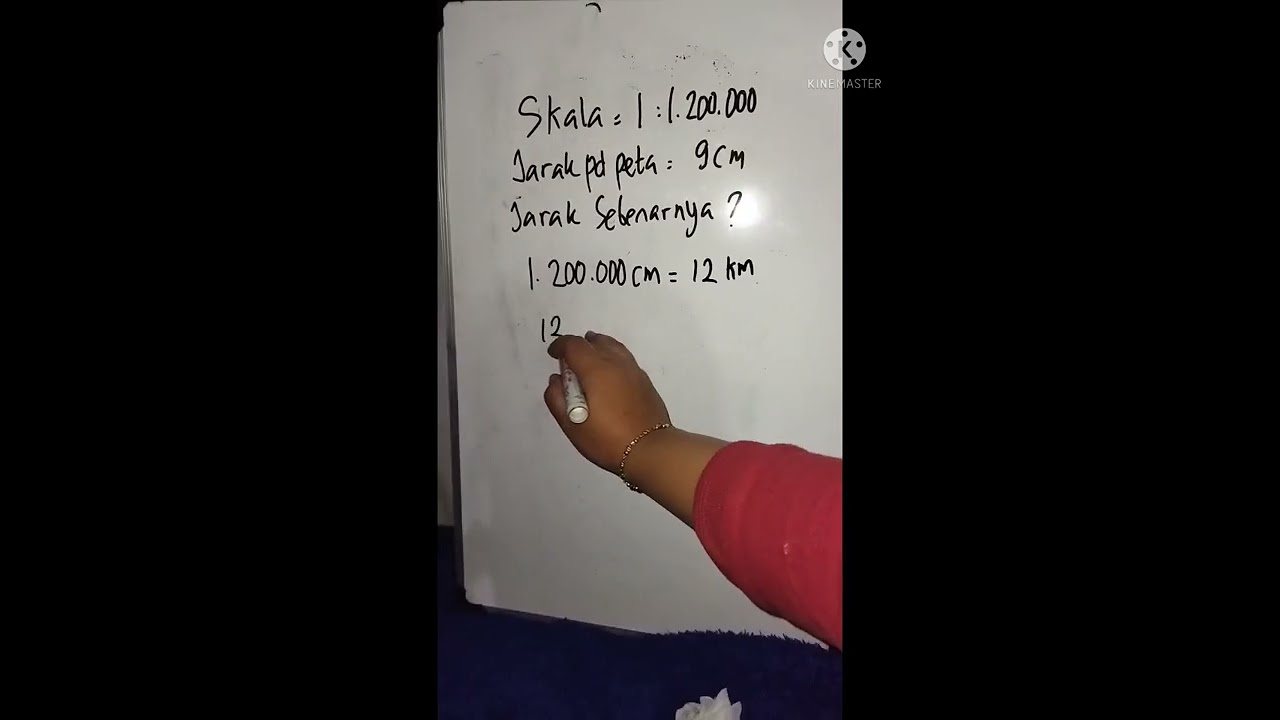 KINEMASTER
Skala = 1 : 1.200.000
Jarak pd peta = 9 cm
Jarak Sebenarnya ?
1.200.000 cm = 12 km
12